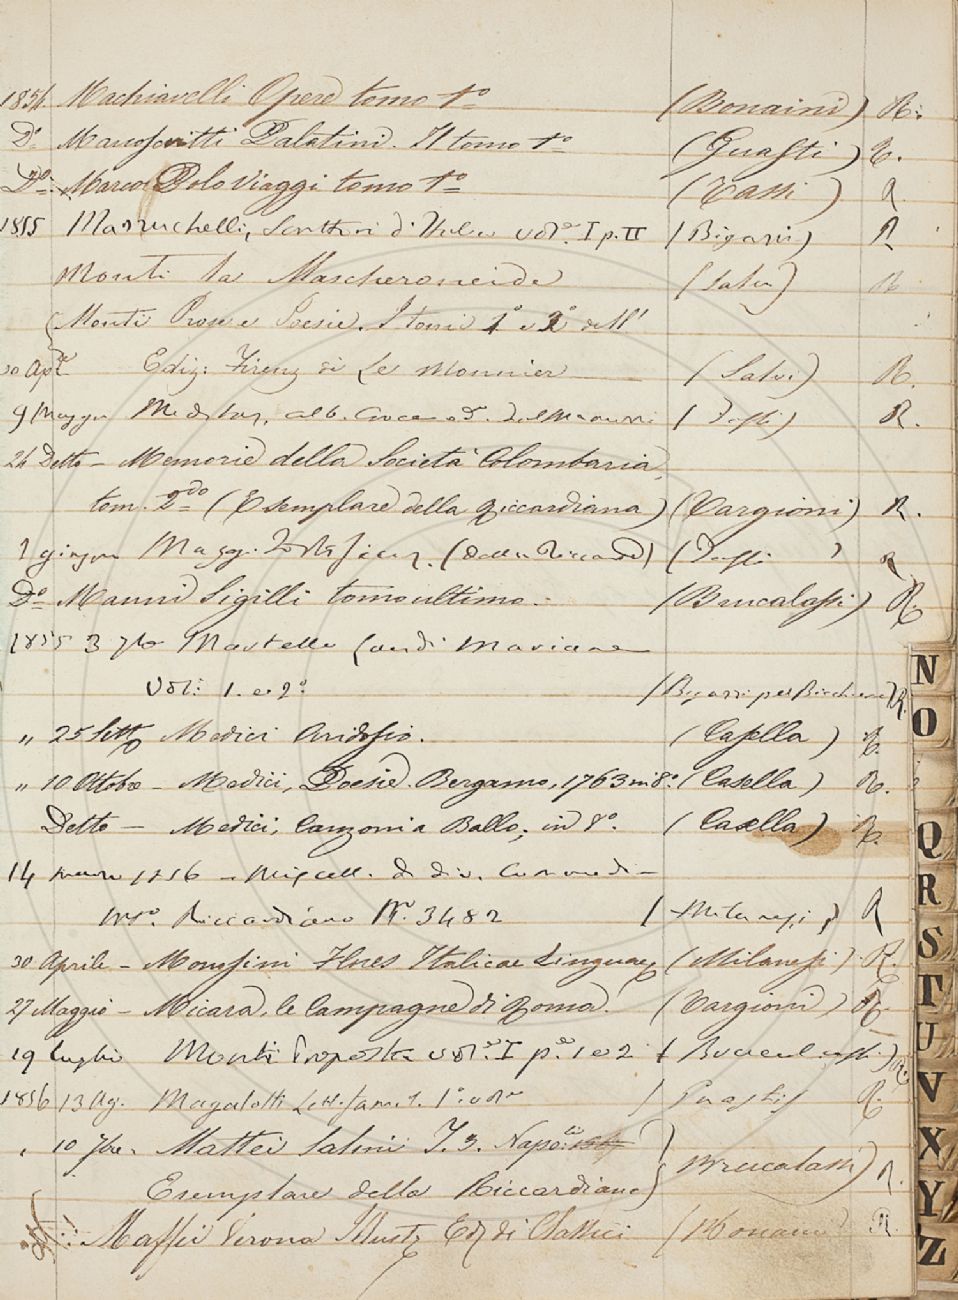 1854. Machiavelli Opere tomo 1º (Bonaini) R.
Dº Palatini. tomo 1º (Guasti) R.
Dº: Marco Polo Viaggi tomo 1º (Tassi) R.
1855 Mazzuchelli, Scrittori d'Italia vol. I p. II (Bigazzi) R
Monti la Mascheroniade (Salvi) R
Monti Prose e Poesie. Tomi 1º e 2º dell'
Ediz: Firenz di Le Monnier (Salvi) R.
9 Maggio R.
24 Detto – Memorie della Società Colombaria,
tom. 2do (Esemplare della Riccardiana) (Targioni) R.
1 giugno Magg. (della Riccard) R
Dº Manni Sigilli tomo ultimo. (Brucalassi) R.
1855 3 7bre Martello
Vol: 1. e 2º (Bigazzi per R.
" 25 Sett Medici Aridosio. (Casella) R.
" 10 Ottobre – Medici, Poesie. Bergamo, 1763 in 8º. (Casella) R.
Detto – Medici, Canzoni a Ballo, in 8º. (Casella) R.
14 1856 – Miscell. di div. Commedi –
Riccardiano Nº. 3482 (Milanesi) R
30 Aprile – Monosini Flores Italicae Linguae (Milanesi) R.
27 Maggio – Micara, le Campagne di Roma. (Targioni) R.
19 Luglio Monti Proposta vol. I p. 1 e 2 R.
1856 13 Ag. Magalotti Lett. fam. t. 1º (Guasti) R.
10 7bre. Mattei Salmi T. 3. Napoli
Esemplare della Riccardiana) (Brucalassi) R.
Maffei Verona Illust. Ed di Classici R.
N
O
Q
R
S
T
U
V
X
Y
Z